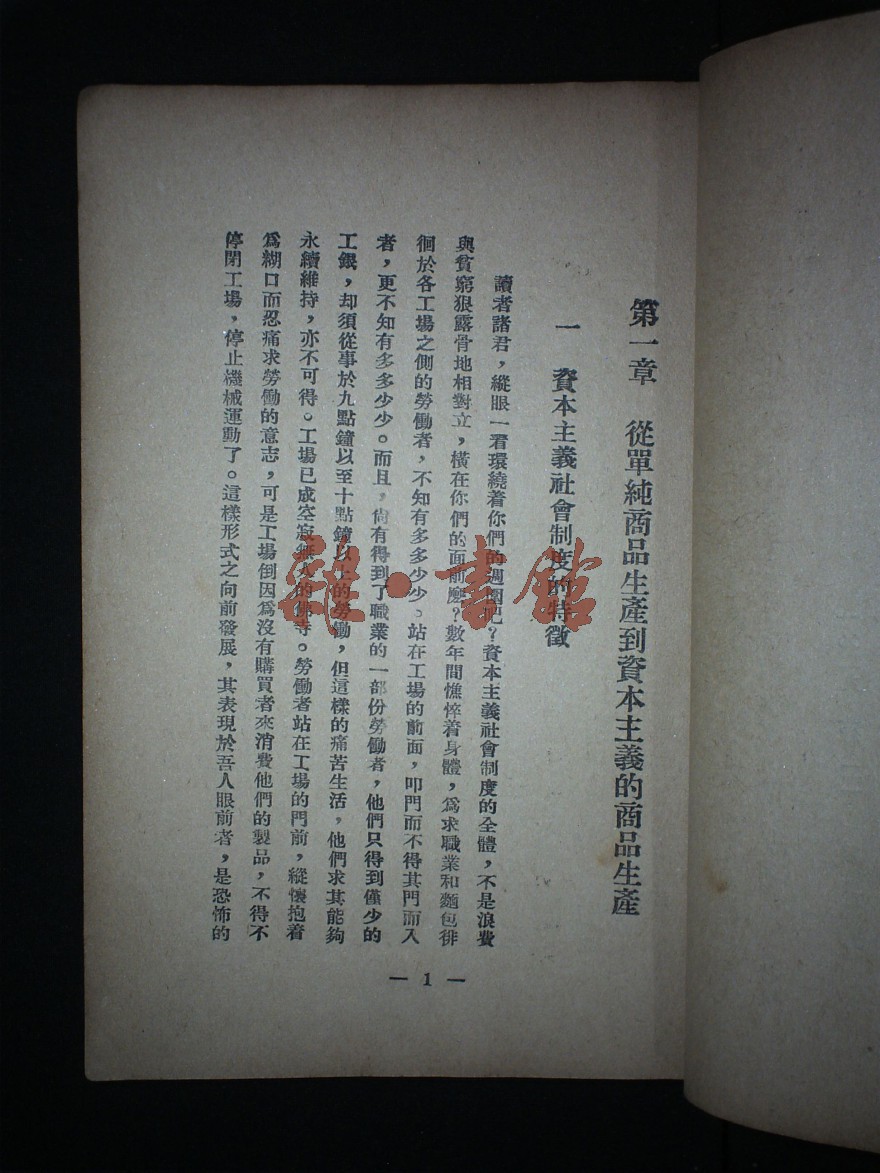 第一章　從單純商品生產到資本主義的商品生產
一　資本主義社會制度的特徵
讀者諸君，縱眼一看環繞着你們的週圍吧？資本主義社會制度的全體，不是浪費
與貧窮狠露骨地相對立，橫在你們的面前麼？數年間憔悴着身體，爲求職業和麵包徘
徊於各工場之側的勞働者，不知有多多少少。站在工場的前面，叩門而不得其門而入
者，更不知有多多少少。而且，尙有得到了職業的一部份勞働者，他們只得到僅少的
工銀，却須從事於九點鐘以至十點鐘以上的勞働，但這樣的痛苦生活，他們求其能夠
永續維持，亦不可得。工場已成空寂無人的佛寺。勞働者站在工場的門前，縱懷抱着
爲糊口而忍痛求勞働的意志，可是工場倒因爲沒有購買者來消費他們的製品，不得不
停閉工場，停止機械運動了。這樣形式之向前發展，其表現於吾人眼前者，是恐怖的
— 1 —
雜·書館